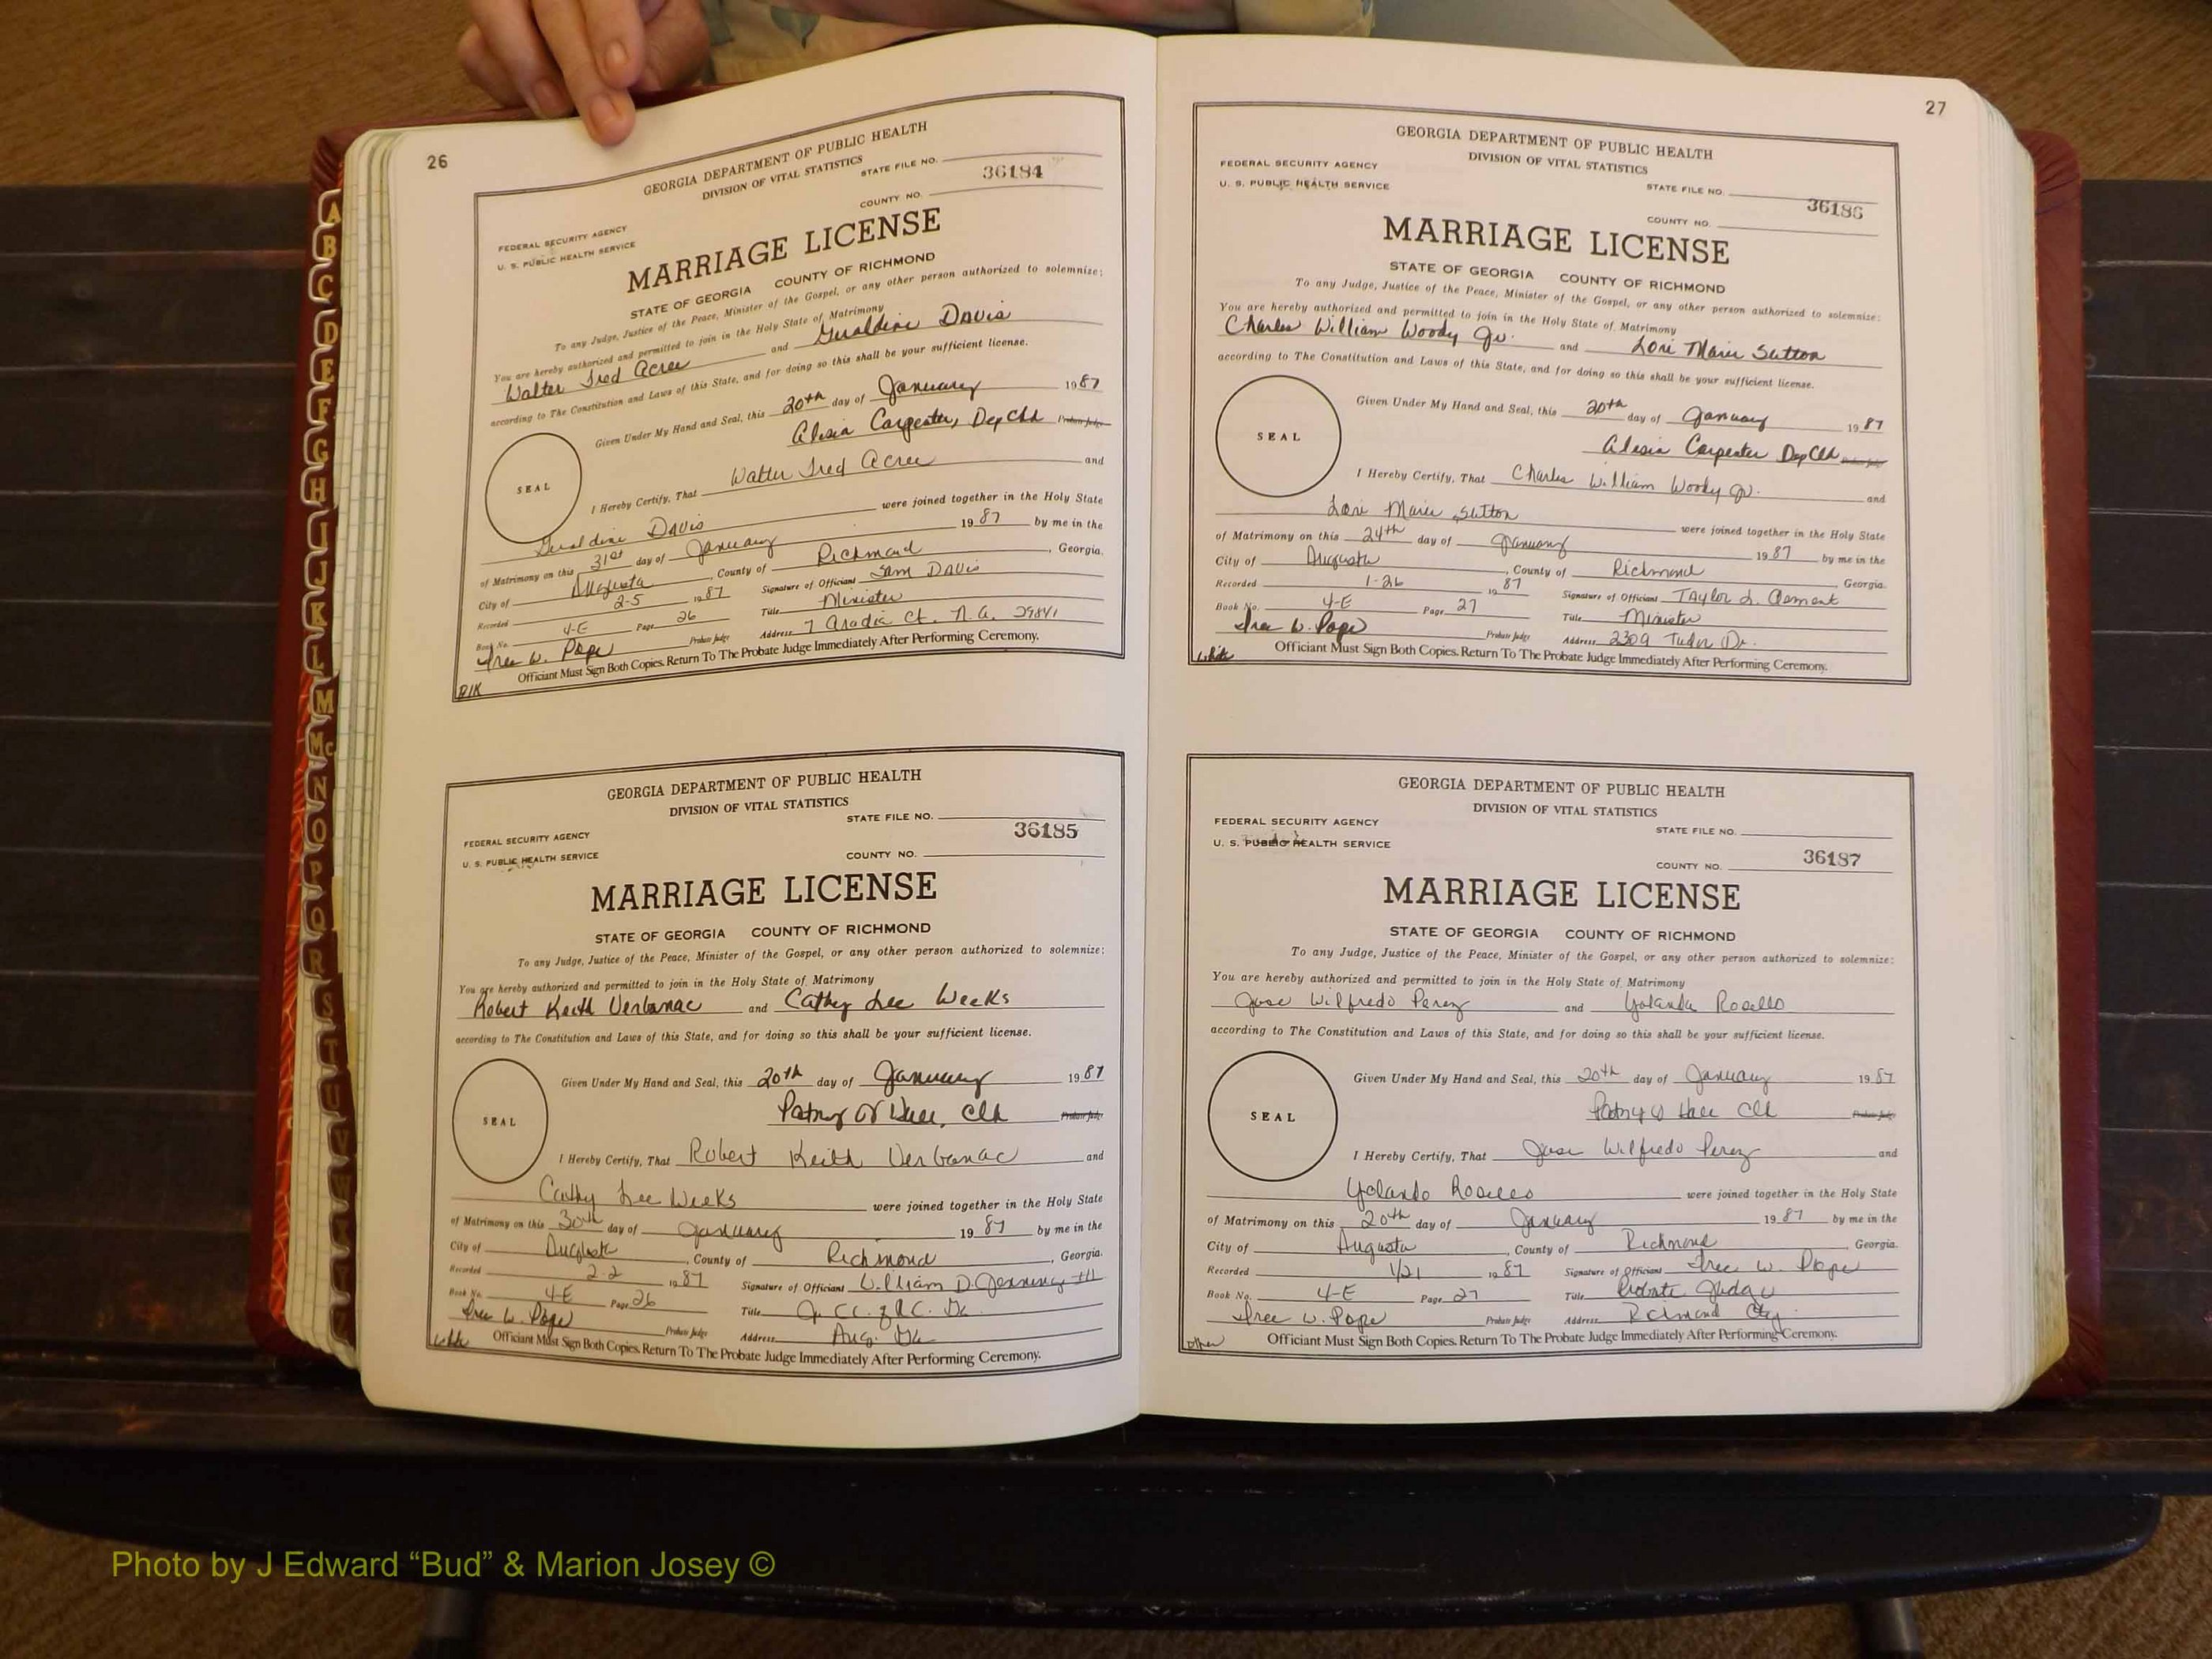 26
GEORGIA DEPARTMENT OF PUBLIC HEALTH
DIVISION OF VITAL STATISTICS
STATE FILE NO.
36184
COUNTY NO.
FEDERAL SECURITY AGENCY
U. S. PUBLIC HEALTH SERVICE
MARRIAGE LICENSE
STATE OF GEORGIA COUNTY OF RICHMOND
To any Judge, Justice of the Peace, Minister of the Gospel, or any other person authorized to solemnize:
You are hereby authorized and permitted to join in the Holy State of Matrimony
Walter Fred Acree and Geraldine Davis
according to The Constitution and Laws of this State, and for doing so this shall be your sufficient license.
Given Under My Hand and Seal, this 20th day of January 1987
Alesia Carpenter, Dep Clk Probate Judge
SEAL
I Hereby Certify, That Walter Fred Acree and
Geraldine Davis were joined together in the Holy State
of Matrimony on this 31st day of January 1987 by me in the
City of Augusta, County of Richmond, Georgia.
Recorded 2-5 1987 Signature of Officiant Sam Davis
Book No. 4-E Page 26 Title Minister
Iree W. Pope Probate Judge Address 7 Ct. N.A. 29841
Officiant Must Sign Both Copies. Return To The Probate Judge Immediately After Performing Ceremony.
Blk
GEORGIA DEPARTMENT OF PUBLIC HEALTH
DIVISION OF VITAL STATISTICS
STATE FILE NO.
36185
FEDERAL SECURITY AGENCY
U. S. PUBLIC HEALTH SERVICE
COUNTY NO.
MARRIAGE LICENSE
STATE OF GEORGIA COUNTY OF RICHMOND
To any Judge, Justice of the Peace, Minister of the Gospel, or any other person authorized to solemnize:
You are hereby authorized and permitted to join in the Holy State of Matrimony
Robert Keith Verbanac and Cathy Lee Weeks
according to The Constitution and Laws of this State, and for doing so this shall be your sufficient license.
Given Under My Hand and Seal, this 20th day of January 1987
Clk Probate Judge
SEAL
I Hereby Certify, That Robert Keith Verbanac and
Cathy Lee Weeks were joined together in the Holy State
of Matrimony on this 30th day of January 1987 by me in the
City of Augusta, County of Richmond, Georgia.
Recorded 2-2 1987 Signature of Officiant William D. Jennings III
Book No. 4-E Page 26 Title
Iree W. Pope Probate Judge Address Aug. Ga
White Officiant Must Sign Both Copies. Return To The Probate Judge Immediately After Performing Ceremony.
27
GEORGIA DEPARTMENT OF PUBLIC HEALTH
DIVISION OF VITAL STATISTICS
FEDERAL SECURITY AGENCY
U. S. PUBLIC HEALTH SERVICE
STATE FILE NO.
36186
COUNTY NO.
MARRIAGE LICENSE
STATE OF GEORGIA COUNTY OF RICHMOND
To any Judge, Justice of the Peace, Minister of the Gospel, or any other person authorized to solemnize:
You are hereby authorized and permitted to join in the Holy State of Matrimony
Charles William Woody Jr. and Lori Marie Sutton
according to The Constitution and Laws of this State, and for doing so this shall be your sufficient license.
Given Under My Hand and Seal, this 20th day of January 1987
Alesia Carpenter Dep Clk Probate Judge
SEAL
I Hereby Certify, That Charles William Woody Jr. and
Lori Marie Sutton were joined together in the Holy State
of Matrimony on this 24th day of January 1987 by me in the
City of Augusta, County of Richmond Georgia.
Recorded 1-26 1987 Signature of Officiant Taylor L. Clement
Book No. 4-E Page 27 Title Minister
Iree W. Pope Probate Judge Address 2309 Tudor Dr.
White Officiant Must Sign Both Copies. Return To The Probate Judge Immediately After Performing Ceremony.
GEORGIA DEPARTMENT OF PUBLIC HEALTH
DIVISION OF VITAL STATISTICS
FEDERAL SECURITY AGENCY
U. S. PUBLIC HEALTH SERVICE
STATE FILE NO.
36187
COUNTY NO.
MARRIAGE LICENSE
STATE OF GEORGIA COUNTY OF RICHMOND
To any Judge, Justice of the Peace, Minister of the Gospel, or any other person authorized to solemnize:
You are hereby authorized and permitted to join in the Holy State of Matrimony
Jose Wilfredo Perez and Yolanda Rosello
according to The Constitution and Laws of this State, and for doing so this shall be your sufficient license.
Given Under My Hand and Seal, this 20th day of January 1987
Clk Probate Judge
SEAL
I Hereby Certify, That Jose Wilfredo Perez and
Yolanda Rosello were joined together in the Holy State
of Matrimony on this 20th day of January 1987 by me in the
City of Augusta, County of Richmond Georgia.
Recorded 1/21 1987 Signature of Officiant Iree W. Pope
Book No. 4-E Page 27 Title Probate Judge
Iree W. Pope Probate Judge Address Richmond Cty.
Other Officiant Must Sign Both Copies. Return To The Probate Judge Immediately After Performing Ceremony.
A
B
C
D
E
F
G
H
I
J
K
L
M
Mc
N
O
P
Q
R
S
T
U
V
W
Photo by J Edward “Bud” & Marion Josey ©